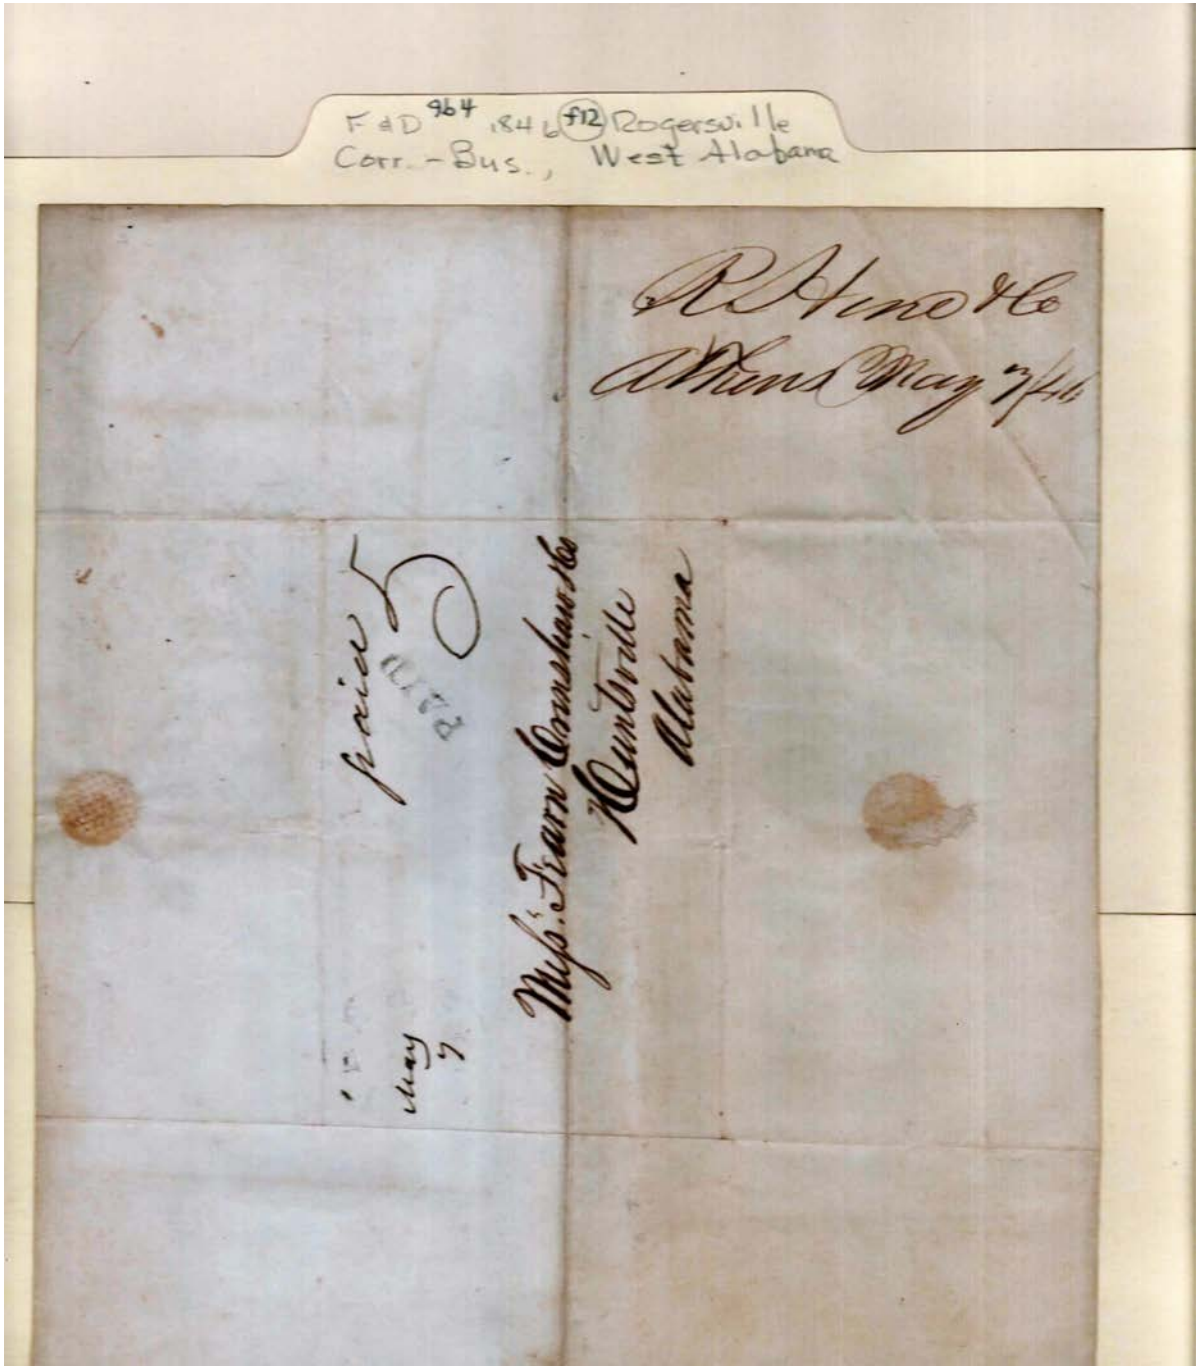 F & D 9b4 1846 f12 Rogersville
Corr. - Bus., West Alabama
R S Hine & Co
Athens May 7/46
paid 5
PAID
Mess. Fearn Crenshaw & Co
Huntsville
Alabama
May
7